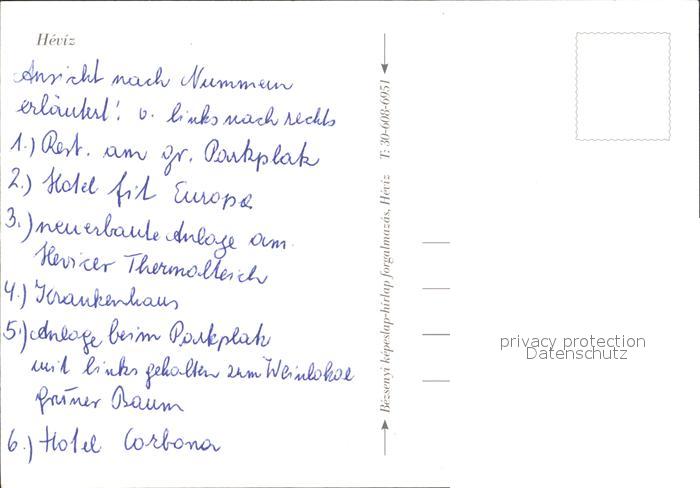 Hévíz
Ansicht nach Nummern
erläutert! v. links nach rechts
1.) Rest. am gr. Parkplatz
2.) Hotel fit Europa
3.) neuerbaute Anlage am
Hevizer Thermalteich
4.) Krankenhaus
5.) Anlage beim Parkplatz
mit links gehalten zum Weinlokal
grüner Baum
6.) Hotel Carbona
Bézsenyi képeslap-hírlap forgalmazás, Hévíz T: 30-608-6951
privacy protection
Datenschutz